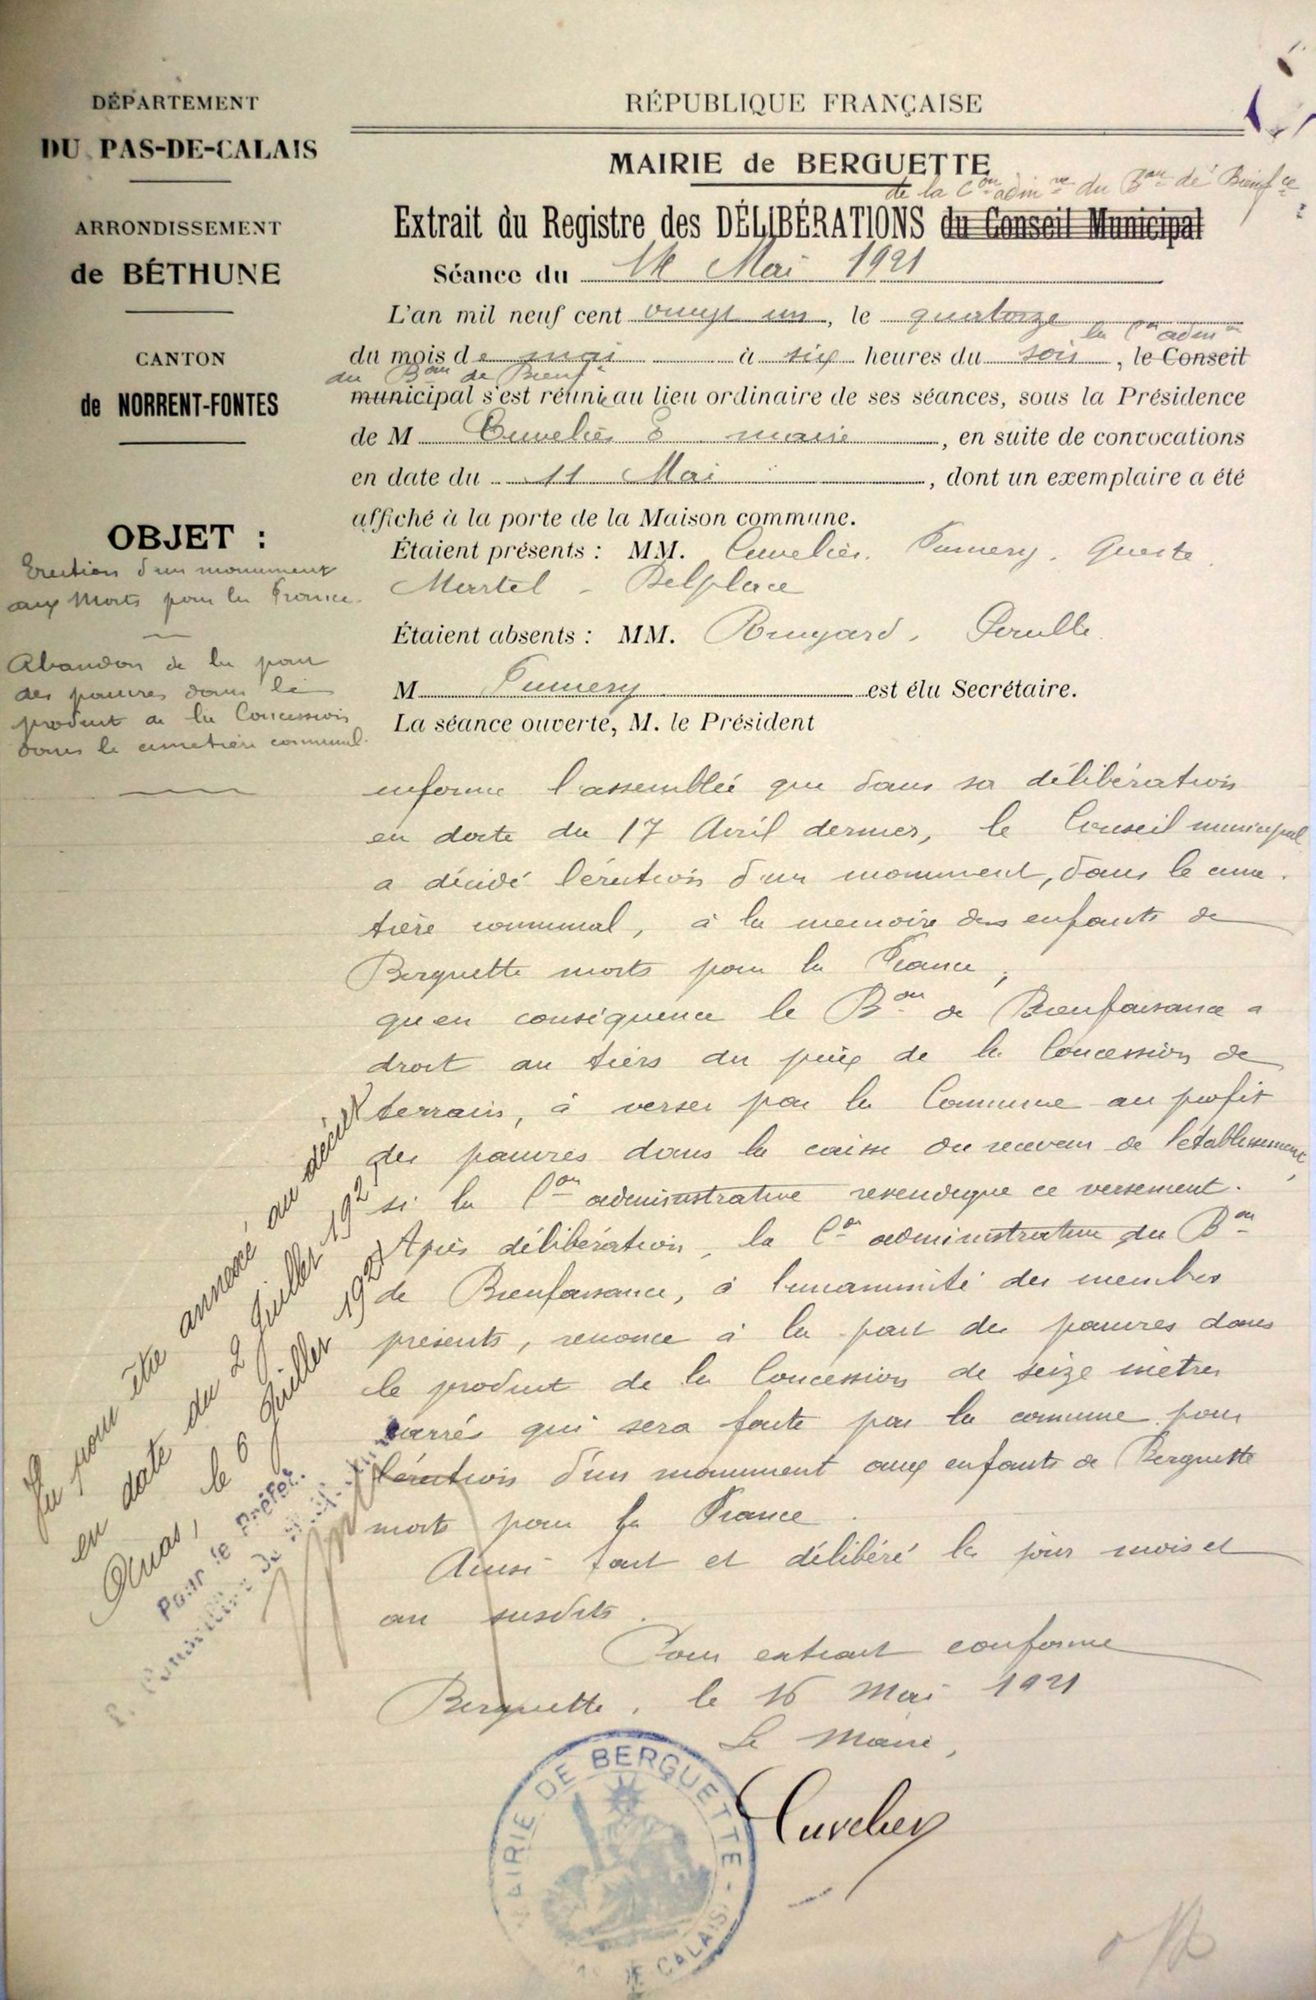 DÉPARTEMENT
DU PAS-DE-CALAIS
ARRONDISSEMENT
de BÉTHUNE
CANTON
de NORRENT-FONTES
OBJET :
Erection d'un monument
aux Morts pour la France.
Abandon de la part
des pauvres dans le
produit de la Concession
dans le cimetière communal.
RÉPUBLIQUE FRANÇAISE
MAIRIE de BERGUETTE
de la Con admve du Bau de Bienfce
Extrait du Registre des DÉLIBÉRATIONS du Conseil Municipal
Séance du 14 Mai 1921
L'an mil neuf cent vingt un, le quatorze
la Con admve
du mois de mai à six heures du soir, le Conseil
du Bau de Bienf
municipal s'est réunie au lieu ordinaire de ses séances, sous la Présidence
de M Cuvelier E maire, en suite de convocations
en date du 11 Mai, dont un exemplaire a été
affiché à la porte de la Maison commune.
Étaient présents : MM. Cuvelier. Fumery. Queste
Martel - Delplace
Étaient absents : MM.
M Fumery est élu Secrétaire.
La séance ouverte, M. le Président
informe l'assemblée que dans sa délibération
en date du 17 Avril dernier, le Conseil municipal
a décidé l'érection d'un monument, dans le cime-
tière communal, à la mémoire des enfants de
Berguette morts pour la France,
qu'en conséquence le Bau de Bienfaisance a
droit au tiers du prix de la Concession de
terrain, à verser par la Commune au profit
des pauvres dans la caisse du receveur de l'établissement,
si la Con administrative revendique ce versement.
Après délibération, la Con administrative du Bau
de Bienfaisance, à l'unanimité des membres
présents, renonce à la part des pauvres dans
le produit de la Concession de seize mètres
carrés qui sera faite par la commune pour
l'érection d'un monument aux enfants de Berguette
morts pour la France.
Ainsi fait et délibéré les jour mois et
an susdits.
Pour extrait conforme
Berguette, le 16 Mai 1921
Le Maire,
Cuvelier
MAIRIE DE BERGUETTE - DE CALAIS
Vu pour être annexé au décret
en date du 2 Juillet 1921
Arras, le 6 Juillet 1921
Pour le Préfet.